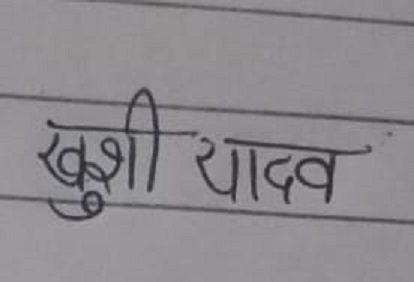 खुशी यादव